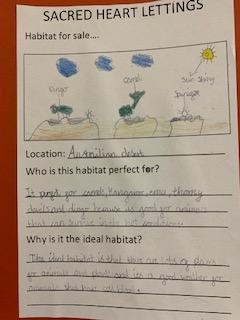 SACRED HEART LETTINGS
Habitat for sale....
Camel
Sun Shiny
Dingo
Spinifex
Location: Australian desert
Who is this habitat perfect for?
It for camels, kangaroo, emu, thorny
devils and dingo because its good for animals
that can survive in the hot conditions.
Why is it the ideal habitat?
The ideal habitat is that there are lots of plans
for animals and plants and its a good weather for
animals that have cold bloo